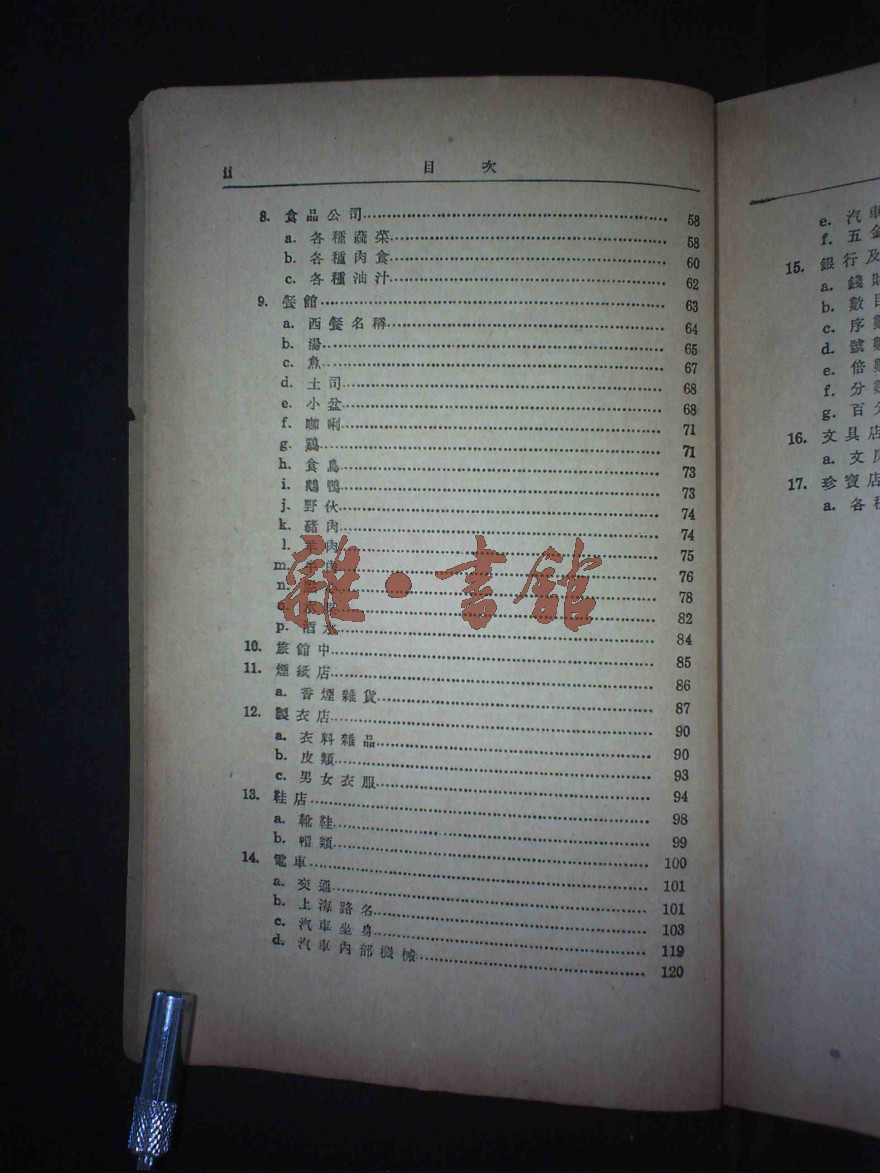 ii 目次
8. 食品公司 58
a. 各種蔬菜 58
b. 各種肉食 60
c. 各種油汁 62
9. 餐館 63
a. 西餐名稱 64
b. 湯 65
c. 魚 67
d. 土司 68
e. 小盆 68
f. 咖喇 71
g. 鷄 71
h. 食鳥 73
i. 鵝鴨 73
j. 野伙 74
k. 豬肉 74
l. 羊肉 75
m. 76
n. 78
o. 82
p. 酒水 84
10. 旅館中 85
11. 煙紙店 86
a. 香煙雜貨 87
12. 製衣店 90
a. 衣料雜品 90
b. 皮類 93
c. 男女衣服 94
13. 鞋店 98
a. 靴鞋 99
b. 帽類 100
14. 電車 101
a. 交通 101
b. 上海路名 103
c. 汽車坐身 119
d. 汽車內部機械 120
雜·書館
e. 汽車
f. 五金
15. 銀行及
a. 錢財
b. 數目
c. 序數
d. 號數
e. 倍數
f. 分數
g. 百分
16. 文具店
a. 文房
17. 珍寶店
a. 各種